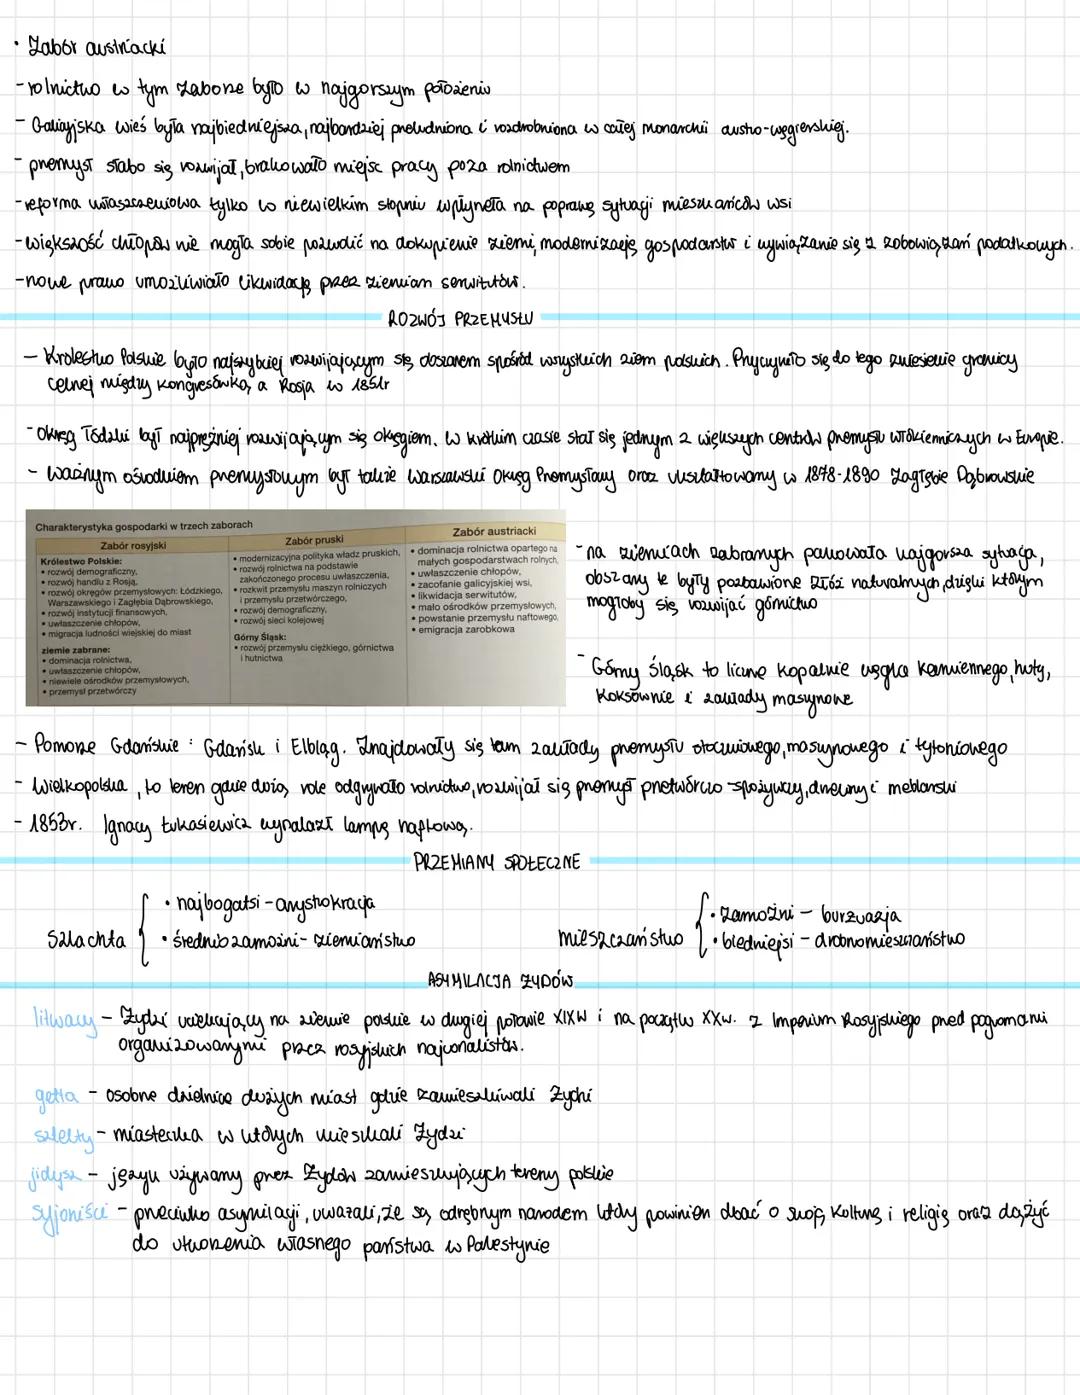 • Zabór austriacki
- rolnictwo w tym zaborze było w najgorszym położeniu
- Galicyjska wieś była najbiedniejsza, najbardziej przeludniona i rozdrobniona w całej monarchii austro-węgierskiej.
- przemysł słabo się rozwijał, brakowało miejsc pracy poza rolnictwem
- reforma uwłaszczeniowa tylko w niewielkim stopniu wpłynęła na poprawę sytuacji mieszkańców wsi
- większość chłopów nie mogła sobie pozwolić na dokupienie ziemi, modernizację gospodarstw i wywiązanie się z zobowiązań podatkowych.
- nowe prawo umożliwiało likwidację przez ziemian serwitutów.
ROZWÓJ PRZEMYSŁU
- Królestwo Polskie było najszybciej rozwijającym się obszarem spośród wszystkich ziem polskich. Przyczyniło się do tego zniesienie granicy
celnej między Kongresówką, a Rosją w 1851r
- Okręg Łódzki był najprężniej rozwijającym się okręgiem. W krótkim czasie stał się jednym z większych centrów przemysłu włókienniczych w Europie.
- Ważnym ośrodkiem przemysłowym był także Warszawski Okręg Przemysłowy oraz ukształtowany w 1878-1890 Zagłębie Dąbrowskie
Charakterystyka gospodarki w trzech zaborach
Zabór rosyjski
Królestwo Polskie:
• rozwój demograficzny,
• rozwój handlu z Rosją,
• rozwój okręgów przemysłowych: Łódzkiego,
Warszawskiego i Zagłębia Dąbrowskiego,
• rozwój instytucji finansowych,
• uwłaszczenie chłopów,
• migracja ludności wiejskiej do miast
ziemie zabrane:
• dominacja rolnictwa,
• uwłaszczenie chłopów,
• niewiele ośrodków przemysłowych,
• przemysł przetwórczy
Zabór pruski
• modernizacyjna polityka władz pruskich,
• rozwój rolnictwa na podstawie
zakończonego procesu uwłaszczenia,
• rozkwit przemysłu maszyn rolniczych
i przemysłu przetwórczego,
• rozwój demograficzny,
• rozwój sieci kolejowej
Górny Śląsk:
• rozwój przemysłu ciężkiego, górnictwa
i hutnictwa
Zabór austriacki
• dominacja rolnictwa opartego na
małych gospodarstwach rolnych,
• uwłaszczenie chłopów,
• zacofanie galicyjskiej wsi,
• likwidacja serwitutów,
• mało ośrodków przemysłowych,
• powstanie przemysłu naftowego,
• emigracja zarobkowa
- na ziemiach zabranych panowała najgorsza sytuacja,
obszary te były pozbawione złóż naturalnych, dzięki którym
mogłoby się rozwijać górnictwo
- Górny Śląsk to liczne kopalnie węgla kamiennego, huty,
koksownie i zakłady maszynowe
- Pomorze Gdańskie: Gdańsk i Elbląg. Znajdowały się tam zakłady przemysłu stoczniowego, maszynowego i tytoniowego
- Wielkopolska, to teren gdzie dużą role odgrywało rolnictwo, rozwijał się przemysł przetwórczo-spożywczy, drzewny i meblarski
- 1853r. Ignacy Łukasiewicz wynalazł lampę naftową.
PRZEMIANY SPOŁECZNE
szlachta
• najbogatsi - arystokracja
• średniozamożni - ziemiaństwo
mieszczaństwo
• zamożni - burżuazja
• biedniejsi - drobnomieszczaństwo
ASYMILACJA ŻYDÓW
litwacy - Żydzi uciekający na ziemie polskie w drugiej połowie XIXw i na początku XXw. z Imperium Rosyjskiego przed pogromami
organizowanymi przez rosyjskich nacjonalistów.
getta - osobne dzielnice dużych miast gdzie zamieszkiwali Żydzi
sztetty - miasteczka w których mieszkali Żydzi
jidysz - język używany przez Żydów zamieszkujących tereny polskie
syjoniści - przeciwko asymilacji, uważali, że są odrębnym narodem który powinien dbać o swoją kulturę i religię oraz dążyć
do utworzenia własnego państwa w Palestynie